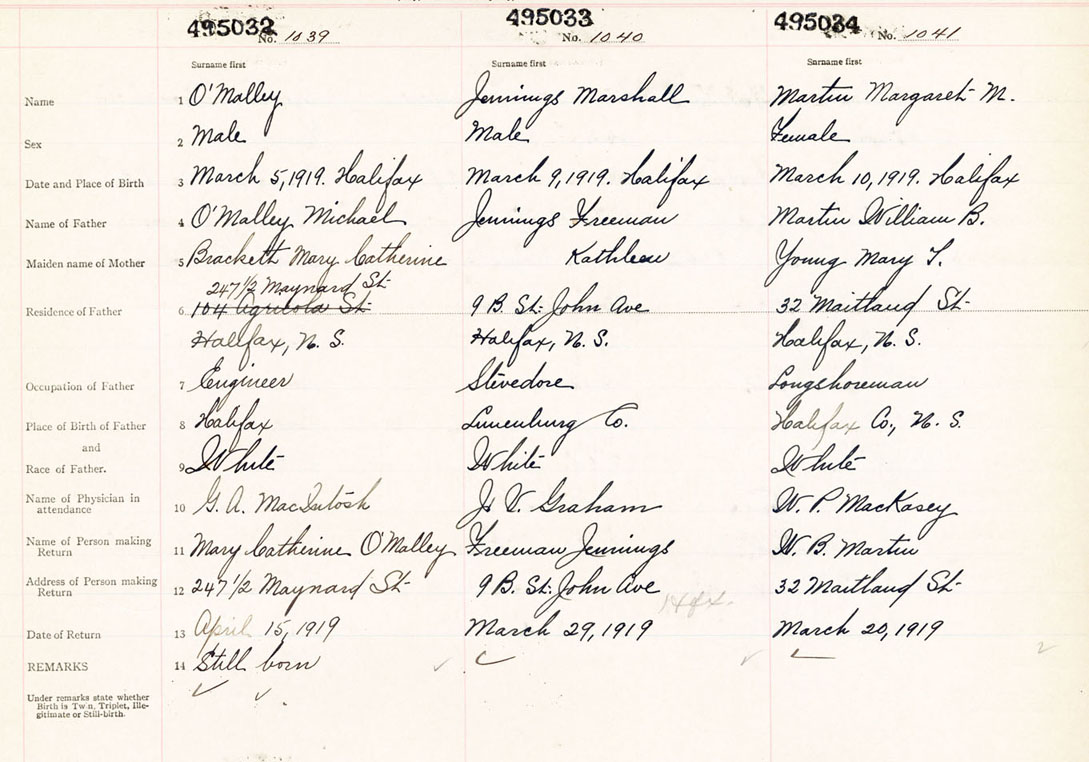 495032 495033 495034
No. 1039 No. 1040 No. 1041
Surname first Surname first Surname first
Name 1 O'Malley Jennings Marshall Martin Margaret M.
Sex 2 Male Male Female
Date and Place of Birth 3 March 5, 1919. Halifax March 9, 1919. Halifax March 10, 1919. Halifax
Name of Father 4 O'Malley Michael Jennings Freeman Martin William B.
Maiden name of Mother 5 Brackett Mary Catherine Kathleen Young Mary T.
247 1/2 Maynard St.
Residence of Father 6 104 Agricola St. 9 B. St. John Ave 32 Maitland St.
Halifax, N. S. Halifax, N. S. Halifax, N. S.
Occupation of Father 7 Engineer Stevedore Longshoreman
Place of Birth of Father 8 Halifax Lunenburg Co. Halifax Co., N. S.
and
Race of Father. 9 White White White
Name of Physician in
attendance 10 G. A. MacIntosh J. V. Graham W. P. MacKasey
Name of Person making
Return 11 Mary Catherine O'Malley Freeman Jennings W. B. Martin
Address of Person making
Return 12 247 1/2 Maynard St. 9 B. St. John Ave 32 Maitland St.
Date of Return 13 April 15, 1919 March 29, 1919 March 20, 1919
REMARKS 14 Still born
Under remarks state whether
Birth is Twin, Triplet, Ille-
gitimate or Still-birth.